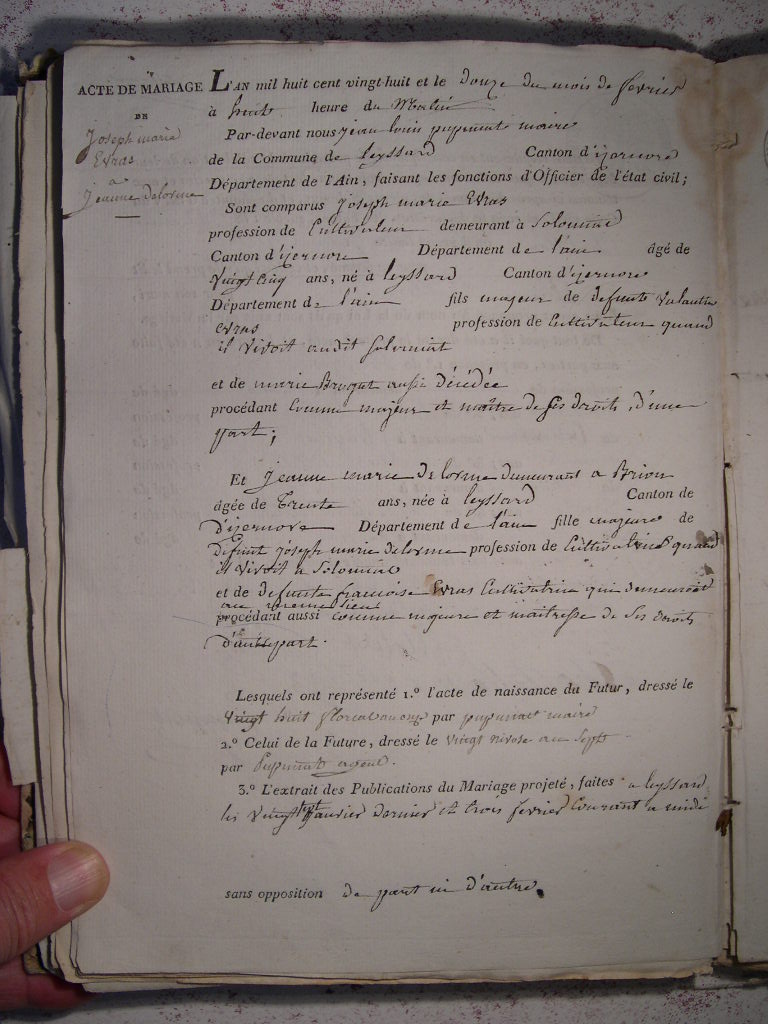 ACTE DE MARIAGE
DE
Joseph marie
Evras
a
Jeanne delorme
L'AN mil huit cent vingt-huit et le douze du mois de fevrier
à huit heure du Matin
Par-devant nous jean louis pupunat maire
de la Commune de leyssard Canton d'izernore
Département de l'Ain, faisant les fonctions d'Officier de l'état civil;
Sont comparus joseph marie Evras
profession de Cultivateur demeurant à Solomiat
Canton d'ijernore Département de l'ain âgé de
vingt cinq ans, né à leyssard Canton d'ijernore
Département de l'ain fils majeur de defunts valentin
evras profession de Cultivateur quand
il vivoit audit solomiat
et de marie aussi décédée
procédant Comme majeur et maître de ses droits, d'une
part;
Et jeanne marie delorme demeurant a Brion
âgée de Trente ans, née à leyssard Canton de
d'ijernore Département de l'ain fille majeure de
Defunt joseph marie delorme profession de Cultivateur quand
il vivoit a Solomiat
et de defunte francoise Evras Cultivatrice qui demeuroit
au meme lieu
procédant aussi comme majeure et maitresse de ses droits
d'autre part.
Lesquels ont représenté 1.º l'acte de naissance du Futur, dressé le
vingt huit floreal an onze par pupunat maire
2.º Celui de la Future, dressé le vingt nivose an sept
par Pupunat agent.
3.º L'extrait des Publications du Mariage projeté, faites a leyssard
les vingt sept janvier dernier et trois fevrier Courant a midi
sans opposition de part ni d'autre.